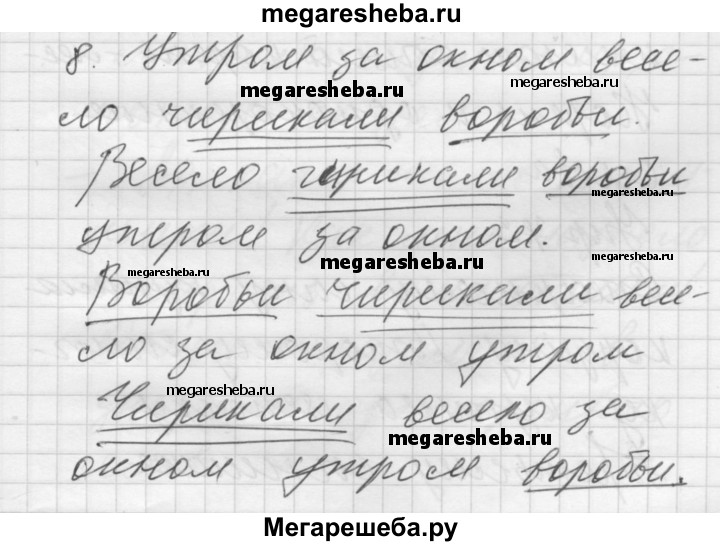 megaresheba.ru
8. Утром за окном весе-
megaresheba.ru
megaresheba.ru
ло чирикали воробьи.
Весело чирикали воробьи
megaresheba.ru
утром за окном.
megaresheba.ru
megaresheba.ru
megaresheba.ru
Воробьи чирикали весе-
ло за окном утром
megaresheba.ru
Чирикали весело за
megaresheba.ru
окном утром воробьи.
Мегарешеба.ру